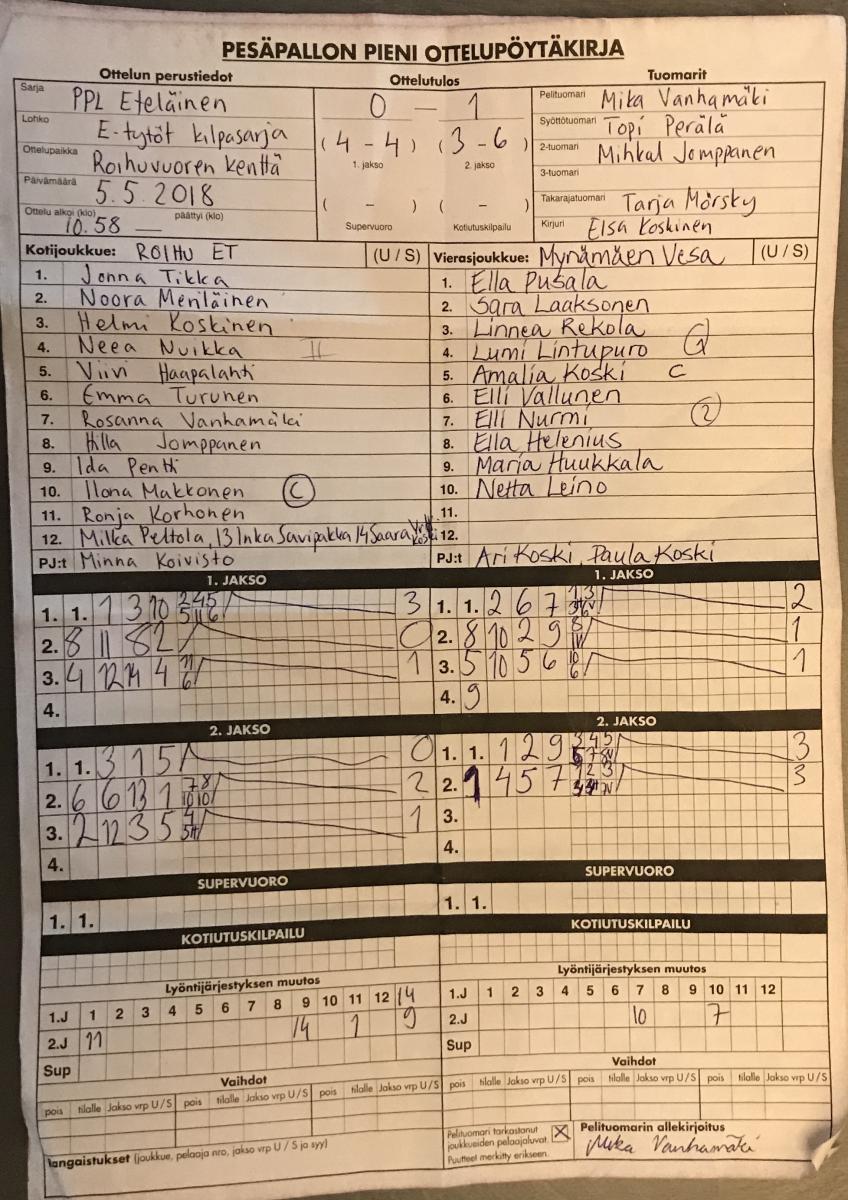 PESÄPALLON PIENI OTTELUPÖYTÄKIRJA
Ottelun perustiedot
Sarja PPL Eteläinen
Lohko E-tytöt kilpasarja
Ottelupaikka Roihuvuoren kenttä
Päivämäärä 5.5.2018
Ottelu alkoi (klo) 10.58 päättyi (klo)
Ottelutulos
0 – 1
(4 - 4) (3 - 6)
1. jakso 2. jakso
( - ) ( - )
Supervuoro Kotiutuskilpailu
Tuomarit
Pelituomari Mika Vanhamäki
Syöttötuomari Topi Perälä
2-tuomari Mihkal Jomppanen
3-tuomari
Takarajatuomari Tarja Mörsky
Kirjuri Elsa Koskinen
Kotijoukkue: ROIHU ET (U / S)
1. Jonna Tikka
2. Noora Meriläinen
3. Helmi Koskinen
4. Neea Nuikka II
5. Viivi Haapalahti
6. Emma Turunen
7. Rosanna Vanhamäki
8. Hilla Jomppanen
9. Ida Pentti
10. Ilona Makkonen C
11. Ronja Korhonen
12. Milka Peltola, 13 Inka Savipakka 14 Saara
PJ:t Minna Koivisto
Vierasjoukkue: Mynämäen Vesa (U / S)
1. Ella Pusala
2. Sara Laaksonen
3. Linnea Rekola
4. Lumi Lintupuro 1
5. Amalia Koski C
6. Elli Vallunen
7. Elli Nurmi 2
8. Ella Helenius
9. Maria Huukkala
10. Netta Leino
11.
12.
PJ:t Ari Koski, Paula Koski
1. JAKSO
1. 1. 1 3 10 3
2. 8 11 8 2 0
3. 4 12 14 4 1
4.
1. JAKSO
1. 1. 2 6 7 2
2. 8 10 2 9 1
3. 5 10 5 6 1
4. 9
2. JAKSO
1. 1. 3 1 5 0
2. 6 6 13 1 2
3. 2 12 3 5 1
4.
2. JAKSO
1. 1. 1 2 9 3
2. 1 4 5 7 3
3.
4.
SUPERVUORO
1. 1.
SUPERVUORO
1. 1.
KOTIUTUSKILPAILU
KOTIUTUSKILPAILU
Lyöntijärjestyksen muutos
1.J 1 2 3 4 5 6 7 8 9 10 11 12 14
2.J 11 14 1 9
Sup
Lyöntijärjestyksen muutos
1.J 1 2 3 4 5 6 7 8 9 10 11 12
2.J 10 7
Sup
Vaihdot
pois tilalle Jakso vrp U / S pois tilalle Jakso vrp U / S pois tilalle Jakso vrp U / S
Vaihdot
pois tilalle Jakso vrp U / S pois tilalle Jakso vrp U / S pois tilalle Jakso vrp U / S
Rangaistukset (joukkue, pelaaja nro, jakso vrp U / S ja syy)
Pelituomari tarkastanut
joukkueiden pelaajaluvat. X
Puutteet merkitty erikseen.
Pelituomarin allekirjoitus
Mika Vanhamäki